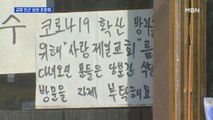 교회 인근 상권 초토화
MBN
수
코로나19 확산 방지를
위해 "사랑제일교회"를
다녀오신 분들은 당분간 식당
방문을 자제 부탁해요